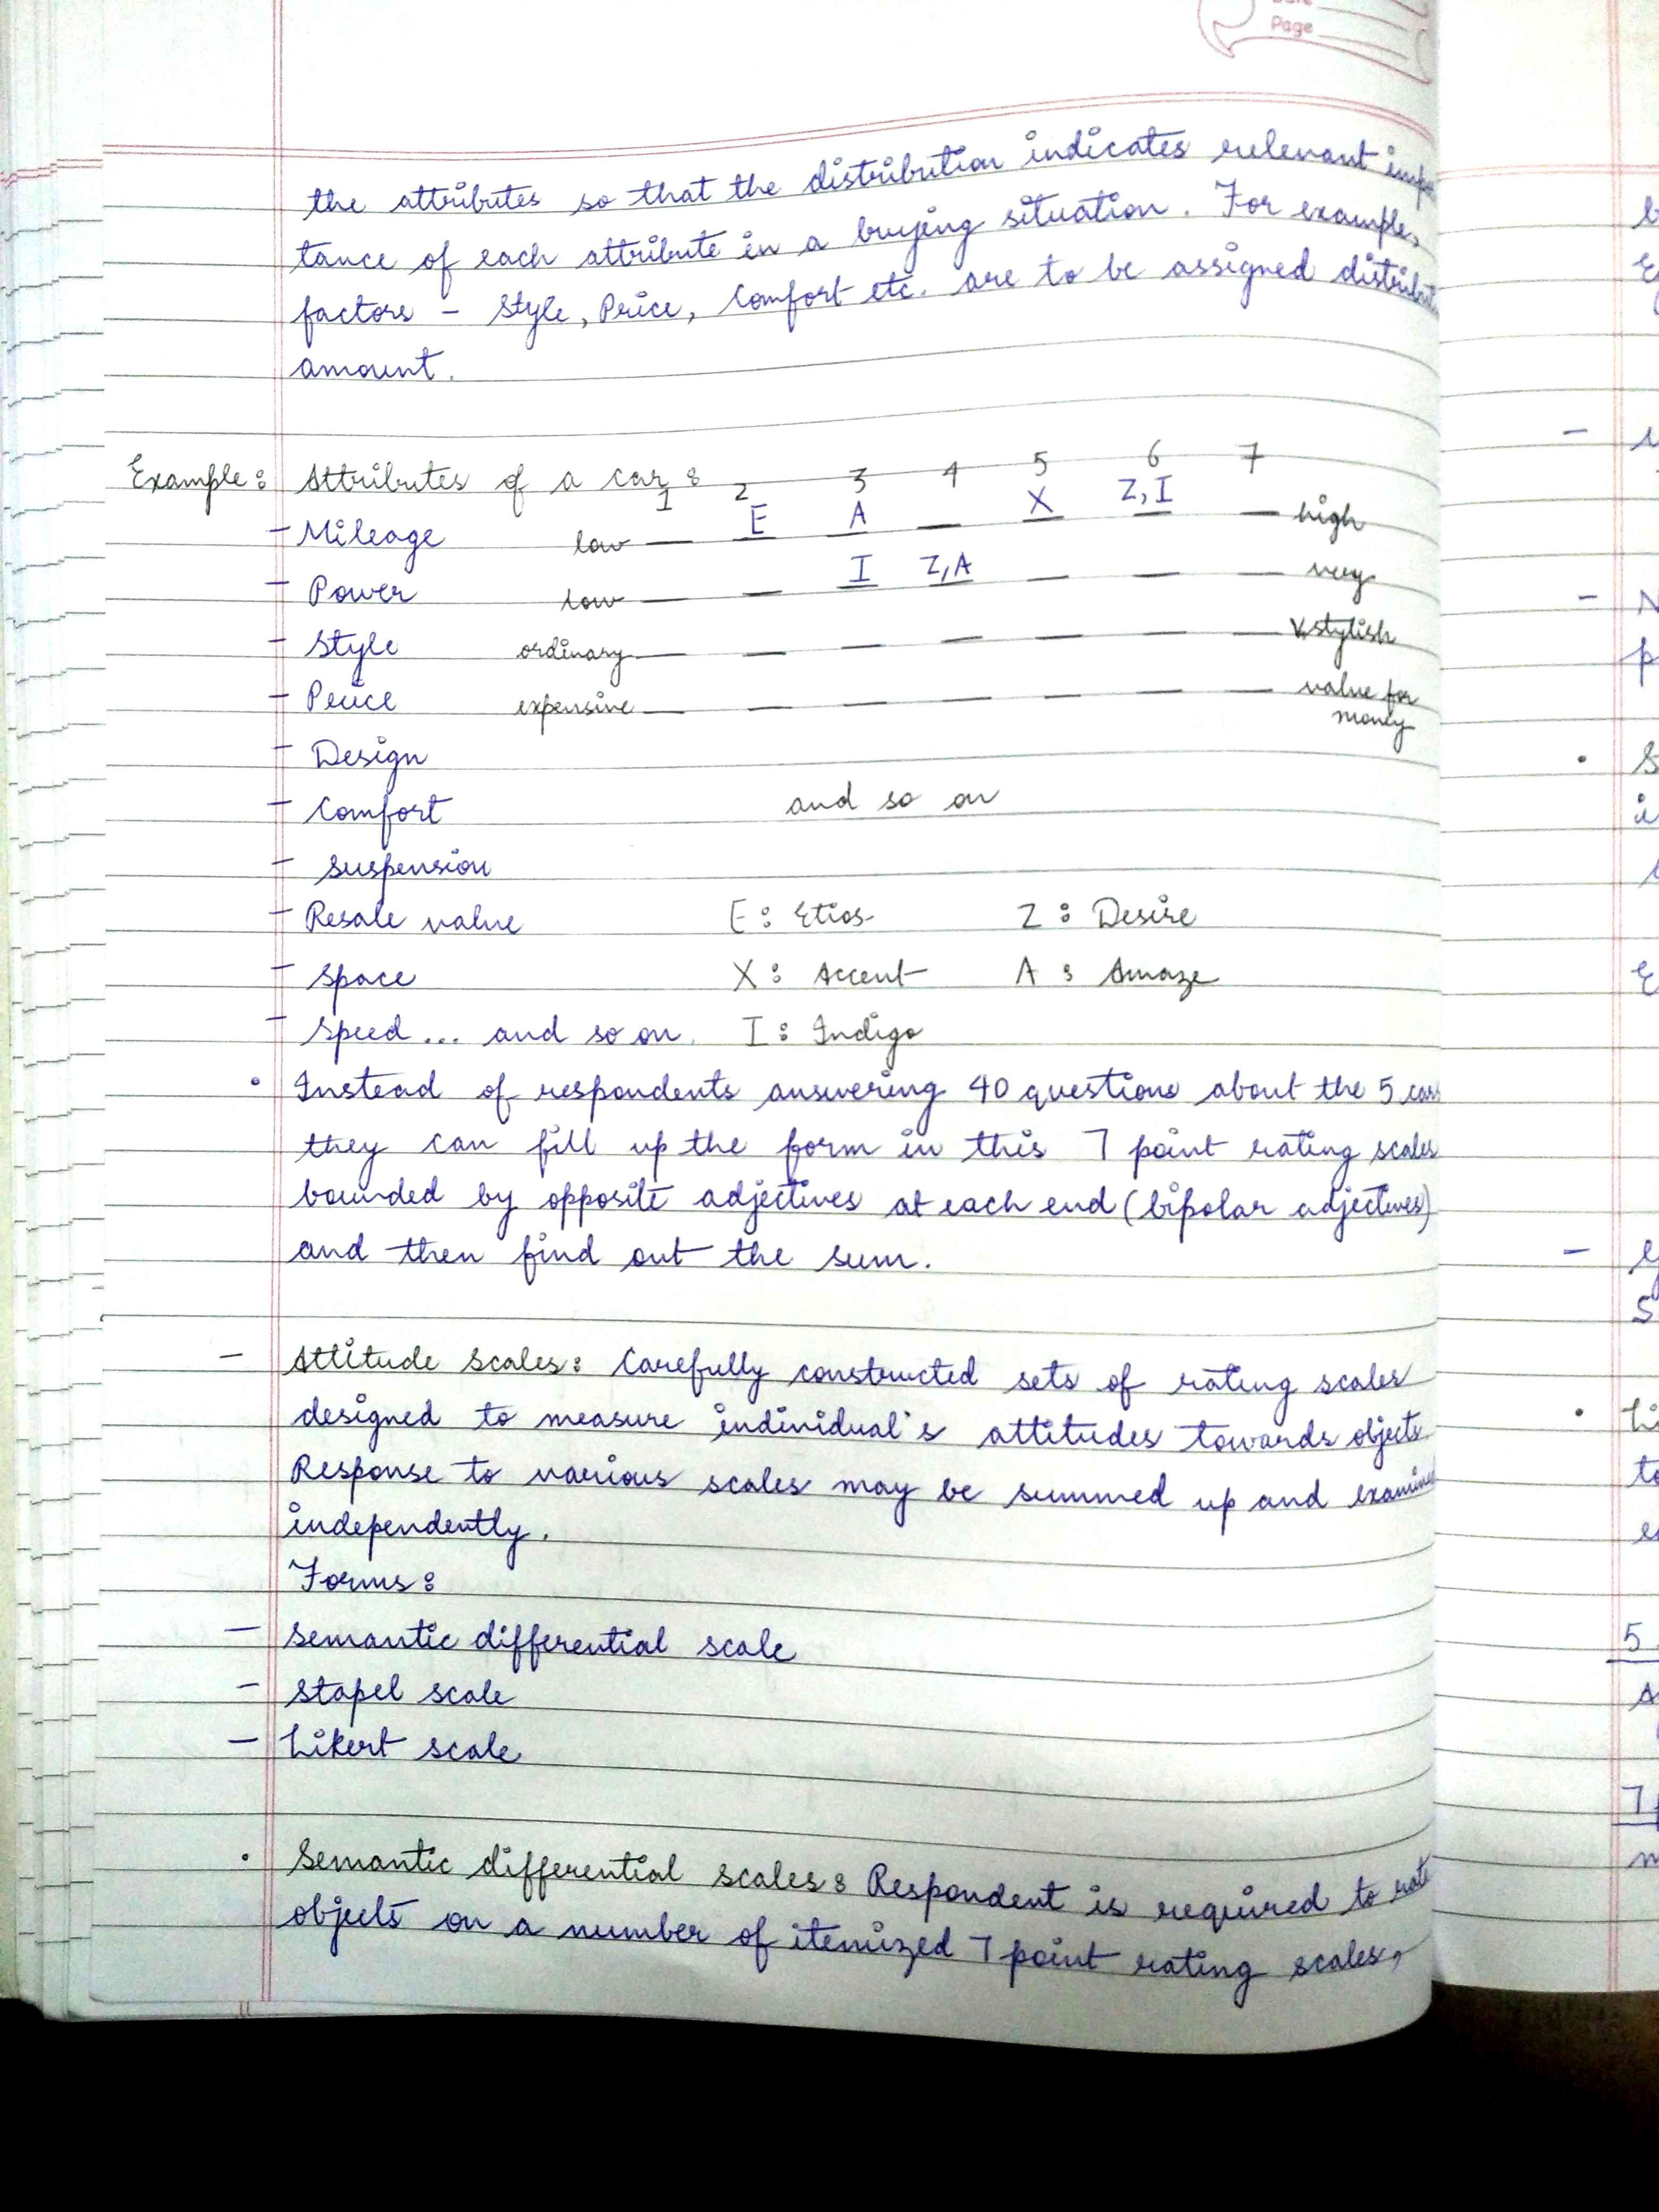 Page
the attributes so that the distribution indicates relevant impor
tance of each attribute in a buying situation. For example,
factors - Style, Price, Comfort etc. are to be assigned
amount.
Example: Attributes of a car:
1 2 3 4 5 6 7
- Mileage low — E A — X Z, I — high
- Power low — — I Z, A — — — very
- Style ordinary — — — — — — — V. stylish
- Price expensive — — — — — — — value for
money
- Design
- Comfort and so on
- Suspension
- Resale value E: Etios Z: Desire
- Space X: Accent A: Amaze
- Speed ... and so on. I: Indigo
• Instead of respondents answering 40 questions about the 5 cars
they can fill up the form in this 7 point rating scales
bounded by opposite adjectives at each end (bipolar adjectives)
and then find out the sum.
- Attitude Scales: Carefully constructed sets of rating scales
designed to measure individual's attitudes towards objects.
Response to various scales may be summed up and examined
independently.
Forms:
- Semantic differential scale
- Stapel scale
- Likert scale
• Semantic differential scales: Respondent is required to rate
objects on a number of itemized 7 point rating scales,